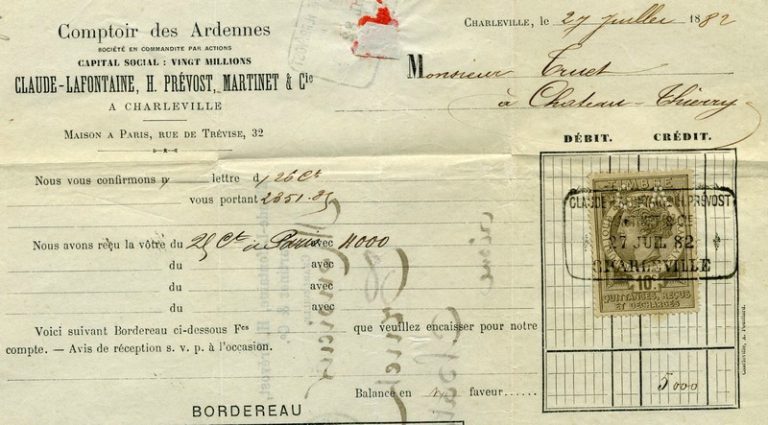 Comptoir des Ardennes
SOCIÉTÉ EN COMMANDITE PAR ACTIONS
CAPITAL SOCIAL : VINGT MILLIONS
CLAUDE-LAFONTAINE, H. PRÉVOST, MARTINET & Cie
A CHARLEVILLE
MAISON A PARIS, RUE DE TRÉVISE, 32
CHARLEVILLE, le 27 Juillet 1882
Monsieur Truet
à Chateau-Thierry
DÉBIT. CRÉDIT.
Nous vous confirmons n/ lettre d/ 26 Ct
vous portant 2851.85
Nous avons reçu la vôtre du 25 Ct à Paris avec 11000
du avec
du avec
du avec
Voici suivant Bordereau ci-dessous Fcs que veuillez encaisser pour notre
compte. — Avis de réception s. v. p. à l'occasion.
Balance en n/ faveur
5000
BORDEREAU
TIMBRE
10c
QUITTANCES, REÇUS
ET DÉCHARGES
27 JUIL. 82
CHARLEVILLE